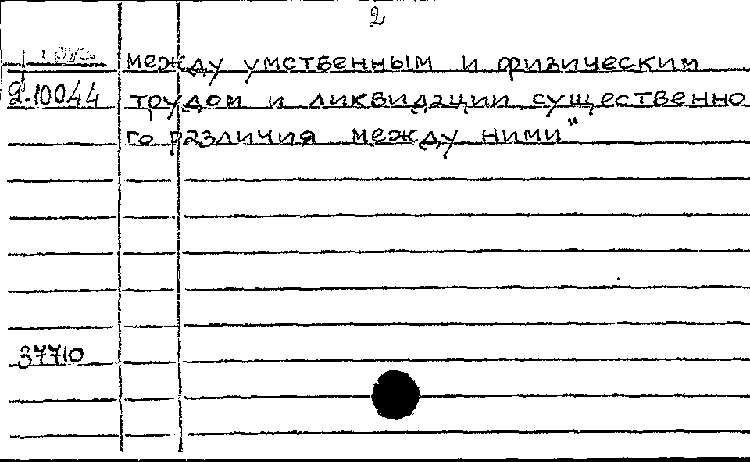 2
между умственным и физическим
2-10044 трудом и ликвидации существенно
го различия между ними"
37710